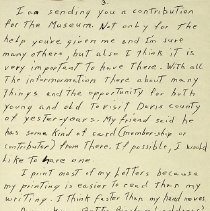 3.
I am sending you a contribution
for the Museum. Not only for the
help you've given me and I'm sure
many others, but also I think it is
very important to have there. With all
the information there about many
things and the opportunity for both
young and old to visit Davis county
of yester-years. My friend said he
has some kind of card (membership or
contributor) from there. If possible, I would
like to have one
I print most of my letters because
my printing is easier to read than my
writing. I think faster than my hand moves